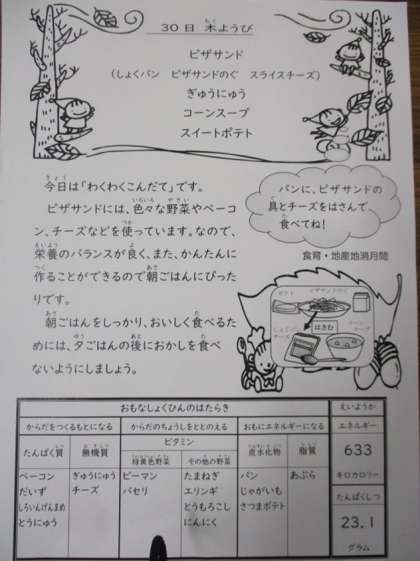 30日 木ようび
ピザサンド
(しょくパン ピザサンドのぐ スライスチーズ)
ぎゅうにゅう
コーンスープ
スイートポテト
今日は「わくわくこんだて」です。
ピザサンドには、色々な野菜やベーコ
ン、チーズなどを使っています。なので、
栄養のバランスが良く、また、かんたんに
作ることができるので朝ごはんにぴった
りです。
朝ごはんをしっかり、おいしく食べるた
めには、夕ごはんの後におかしを食べ
ないようにしましょう。
パンに、ピザサンドの
具とチーズをはさんで、
食べてね!
食育・地産地消月間
ピザサンドのぐ
ポテト
しょくパン
チーズ
はさむ
コーン
スープ
おもなしょくひんのはたらき
えいようか
からだをつくるもとになる
からだのちょうしをととのえる
おもにエネルギーになる
エネルギー
たんぱく質
無機質
ビタミン
緑黄色野菜
その他の野菜
炭水化物
脂質
633
キロカロリー
ベーコン
だいず
しろいんげんまめ
とうにゅう
ぎゅうにゅう
チーズ
ピーマン
パセリ
たまねぎ
エリンギ
とうもろこし
にんにく
パン
じゃがいも
さつまポテト
あぶら
たんぱくしつ
23.1
グラム